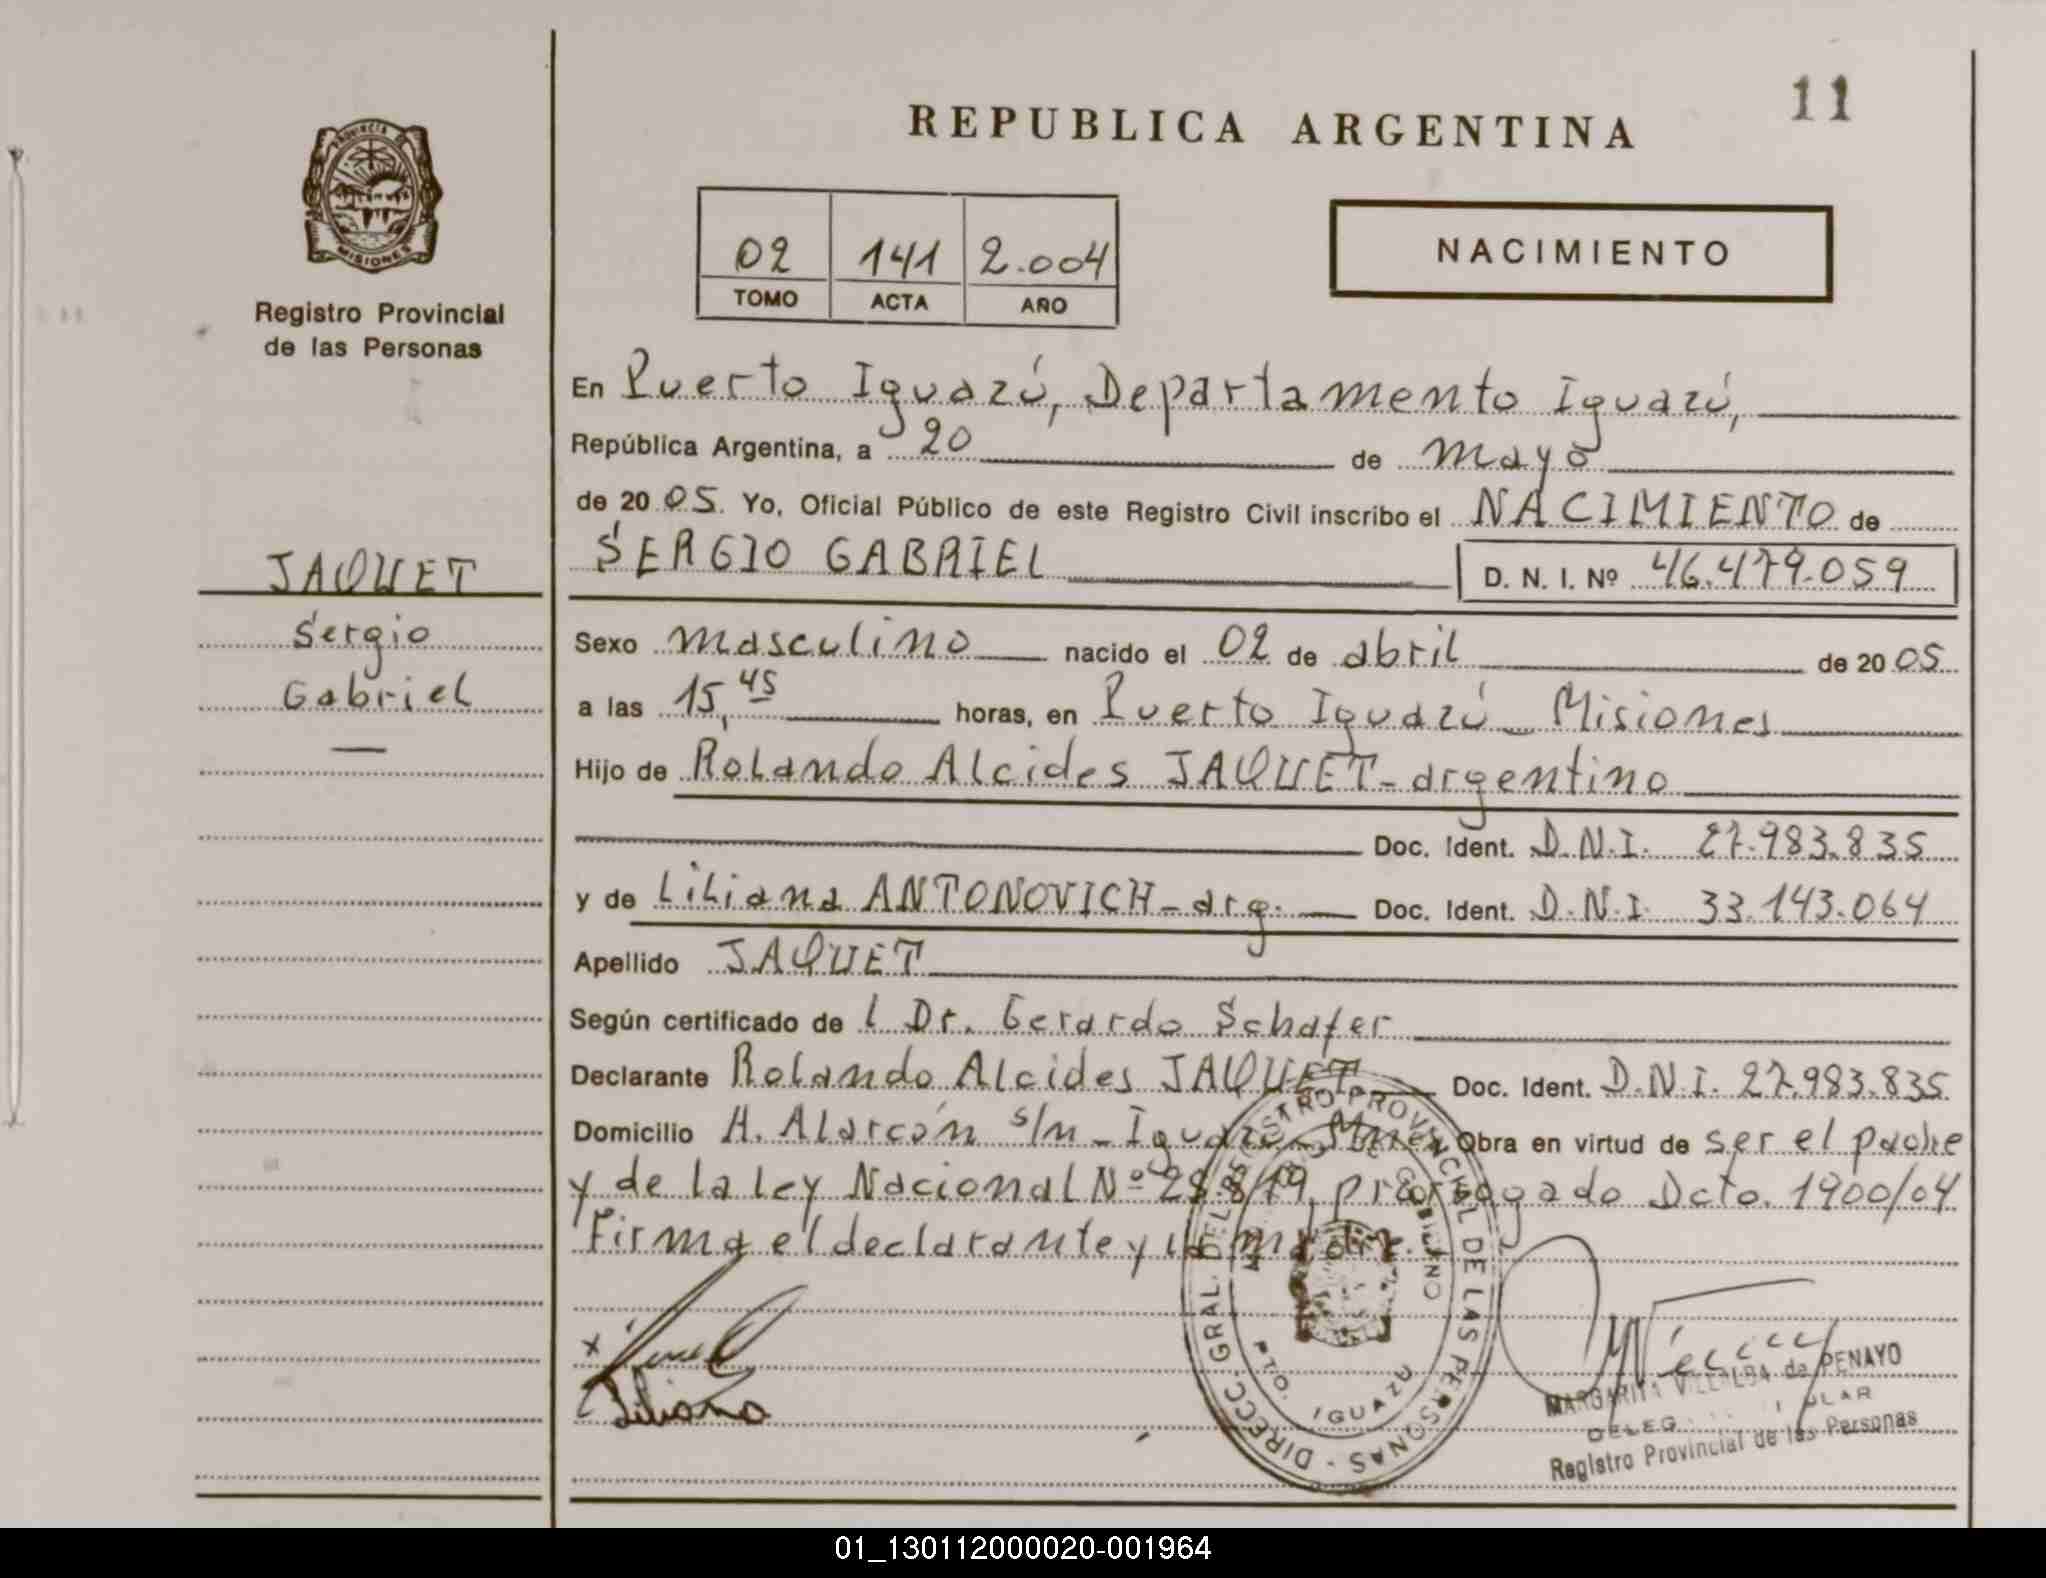 11
REPUBLICA ARGENTINA
PROVINCIA DE
MISIONES
Registro Provincial
de las Personas
02 141 2.004
TOMO ACTA AÑO
NACIMIENTO
En Puerto Iguazú, Departamento Iguazú,
República Argentina, a 20 de mayo
de 2005. Yo, Oficial Público de este Registro Civil inscribo el NACIMIENTO de
SERGIO GABRIEL D. N. I. Nº 46.479.059
JAQUET
Sergio
Gabriel
Sexo masculino nacido el 02 de abril de 2005
a las 15,45 horas, en Puerto Iguazú - Misiones
Hijo de Rolando Alcides JAQUET - argentino
Doc. Ident. D.N.I. 27.983.835
y de Liliana ANTONOVICH - arg. Doc. Ident. D.N.I. 33.143.064
Apellido JAQUET
Según certificado de l Dr. Gerardo Schafer
Declarante Rolando Alcides JAQUET Doc. Ident. D.N.I. 27.983.835
Domicilio H. Alarcón s/n - Iguazú - Mnes Obra en virtud de ser el padre
y de la ley Nacional Nº 25.819, prorrogado Dcto. 1900/04
Firma el declarante y la madre.
Liliana
DIRECC. GRAL. DEL REGISTRO PROVINCIAL DE LAS PERSONAS -
PTO. IGUAZU
MARGARITA VILLALBA de PENAYO
Registro Provincial de las Personas
01_130112000020-001964